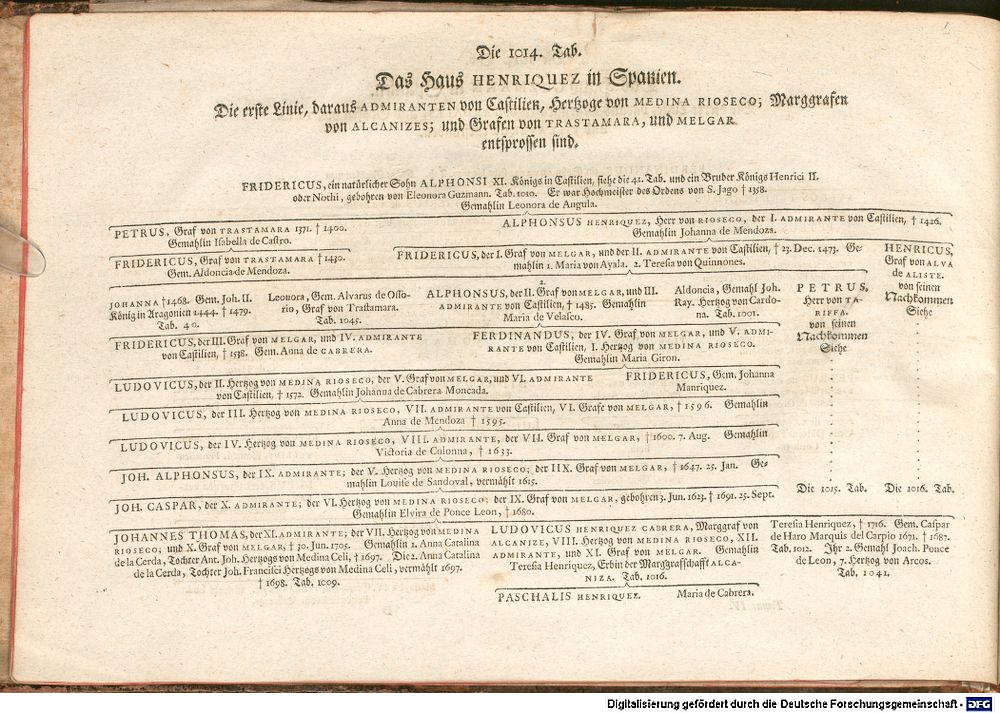 Die 1014. Tab.
Das Haus HENRIQUEZ in Spanien.
Die erste Linie, daraus ADMIRANTEN von Castilien, Hertzoge von MEDINA RIOSECO; Marggrafen
von ALCANIZES; und Grafen von TRASTAMARA, und MELGAR
entsprossen sind.
FRIDERICUS, ein natürlicher Sohn ALPHONSI XI. Königs in Castilien, siehe die 42. Tab. und ein Bruder Königs Henrici II.
oder Nothi, gebohren von Eleonora Guzmann. Tab. 1010. Er war Hochmeister des Ordens von S. Jago † 1358.
Gemahlin Leonora de Angula.
PETRUS, Graf von TRASTAMARA 1371. † 1400.
Gemahlin Isabella de Castro.
ALPHONSUS HENRIQUEZ, Herr von RIOSECO, der I. ADMIRANTE von Castilien, † 1426.
Gemahlin Johanna de Mendoza.
FRIDERICUS, Graf von TRASTAMARA † 1430.
Gem. Aldoncia de Mendoza.
FRIDERICUS, der I. Graf von MELGAR, und der II. ADMIRANTE von Castilien, † 23. Dec. 1473. Ge-
mahlin 1. Maria von Ayala. 2. Teresia von Quinnones.
HENRICUS,
Graf von ALVA
de ALISTE.
von seinen
Nachkommen
Siehe
JOHANNA † 1468. Gem. Joh. II.
König in Aragonien 1444. † 1479.
Tab. 40.
Leonora, Gem. Alvarus de Osso-
rio, Graf von Trastamara.
Tab. 1045.
2.
ALPHONSUS, der II. Graf von MELGAR, und III.
ADMIRANTE von Castilien, † 1485. Gemahlin
Maria de Velasco.
Aldoncia, Gemahl Joh.
Ray. Hertzog von Cardo-
na. Tab. 1001.
PETRUS,
Herr von TA-
RIFFA.
von seinen
Nachkommen
Siehe
FRIDERICUS, der III. Graf von MELGAR, und IV. ADMIRANTE
von Castilien, † 1538. Gem. Anna de CABRERA.
FERDINANDUS, der IV. Graf von MELGAR, und V. ADMI-
RANTE von Castilien, I. Hertzog von MEDINA RIOSECO.
Gemahlin Maria Giron.
LUDOVICUS, der II. Hertzog von MEDINA RIOSECO, der V. Graf von MELGAR, und VI. ADMIRANTE
von Castilien, † 1572. Gemahlin Johanna de Cabrera Moncada.
FRIDERICUS, Gem. Johanna
Manriquez.
LUDOVICUS, der III. Hertzog von MEDINA RIOSECO, VII. ADMIRANTE von Castilien, VI. Grafe von MELGAR, † 1596. Gemahlin
Anna de Mendoza † 1595.
LUDOVICUS, der IV. Hertzog von MEDINA RIOSECO, VIII. ADMIRANTE, der VII. Graf von MELGAR, † 1600. 7. Aug. Gemahlin
Victoria de Colonna, † 1633.
JOH. ALPHONSUS, der IX. ADMIRANTE; der V. Hertzog von MEDINA RIOSECO; der IIX. Graf von MELGAR, † 1647. 25. Jan. Ge-
mahlin Louise de Sandoval, vermählt 1615.
JOH. CASPAR, der X. ADMIRANTE; der VI. Hertzog von MEDINA RIOSECO; der IX. Graf von MELGAR, gebohren 3. Jun. 1623. † 1691. 25. Sept.
Gemahlin Elvira de Ponce Leon, † 1680.
Die 1015. Tab. Die 1016. Tab.
JOHANNES THOMAS, der XI. ADMIRANTE; der VII. Hertzog von MEDINA
RIOSECO; und X. Graf von MELGAR, † 30. Jun. 1705. Gemahlin 1. Anna Catalina
de la Cerda, Tochter Ant. Joh. Hertzogs von Medina Celi, † 1697. Die 2. Anna Catalina
de la Cerda, Tochter Joh. Francisci Hertzogs von Medina Celi, vermählt 1697.
† 1698. Tab. 1009.
LUDOVICUS HENRIQUEZ CABRERA, Marggraf von
ALCANIZE, VIII. Hertzog von MEDINA RIOSECO, XII.
ADMIRANTE, und XI. Graf von MELGAR. Gemahlin
Teresia Henriquez, Erbin der Marggrafschafft ALCA-
NIZA. Tab. 1016.
Teresia Henriquez, † 1716. Gem. Caspar
de Haro Marquis del Carpio 1671. † 1687.
Tab. 1012. Ihr 2. Gemahl Joach. Ponce
de Leon, 7. Hertzog von Arcos.
Tab. 1042.
PASCHALIS HENRIQUEZ. Maria de Cabrera.
Digitalisierung gefördert durch die Deutsche Forschungsgemeinschaft - DFG